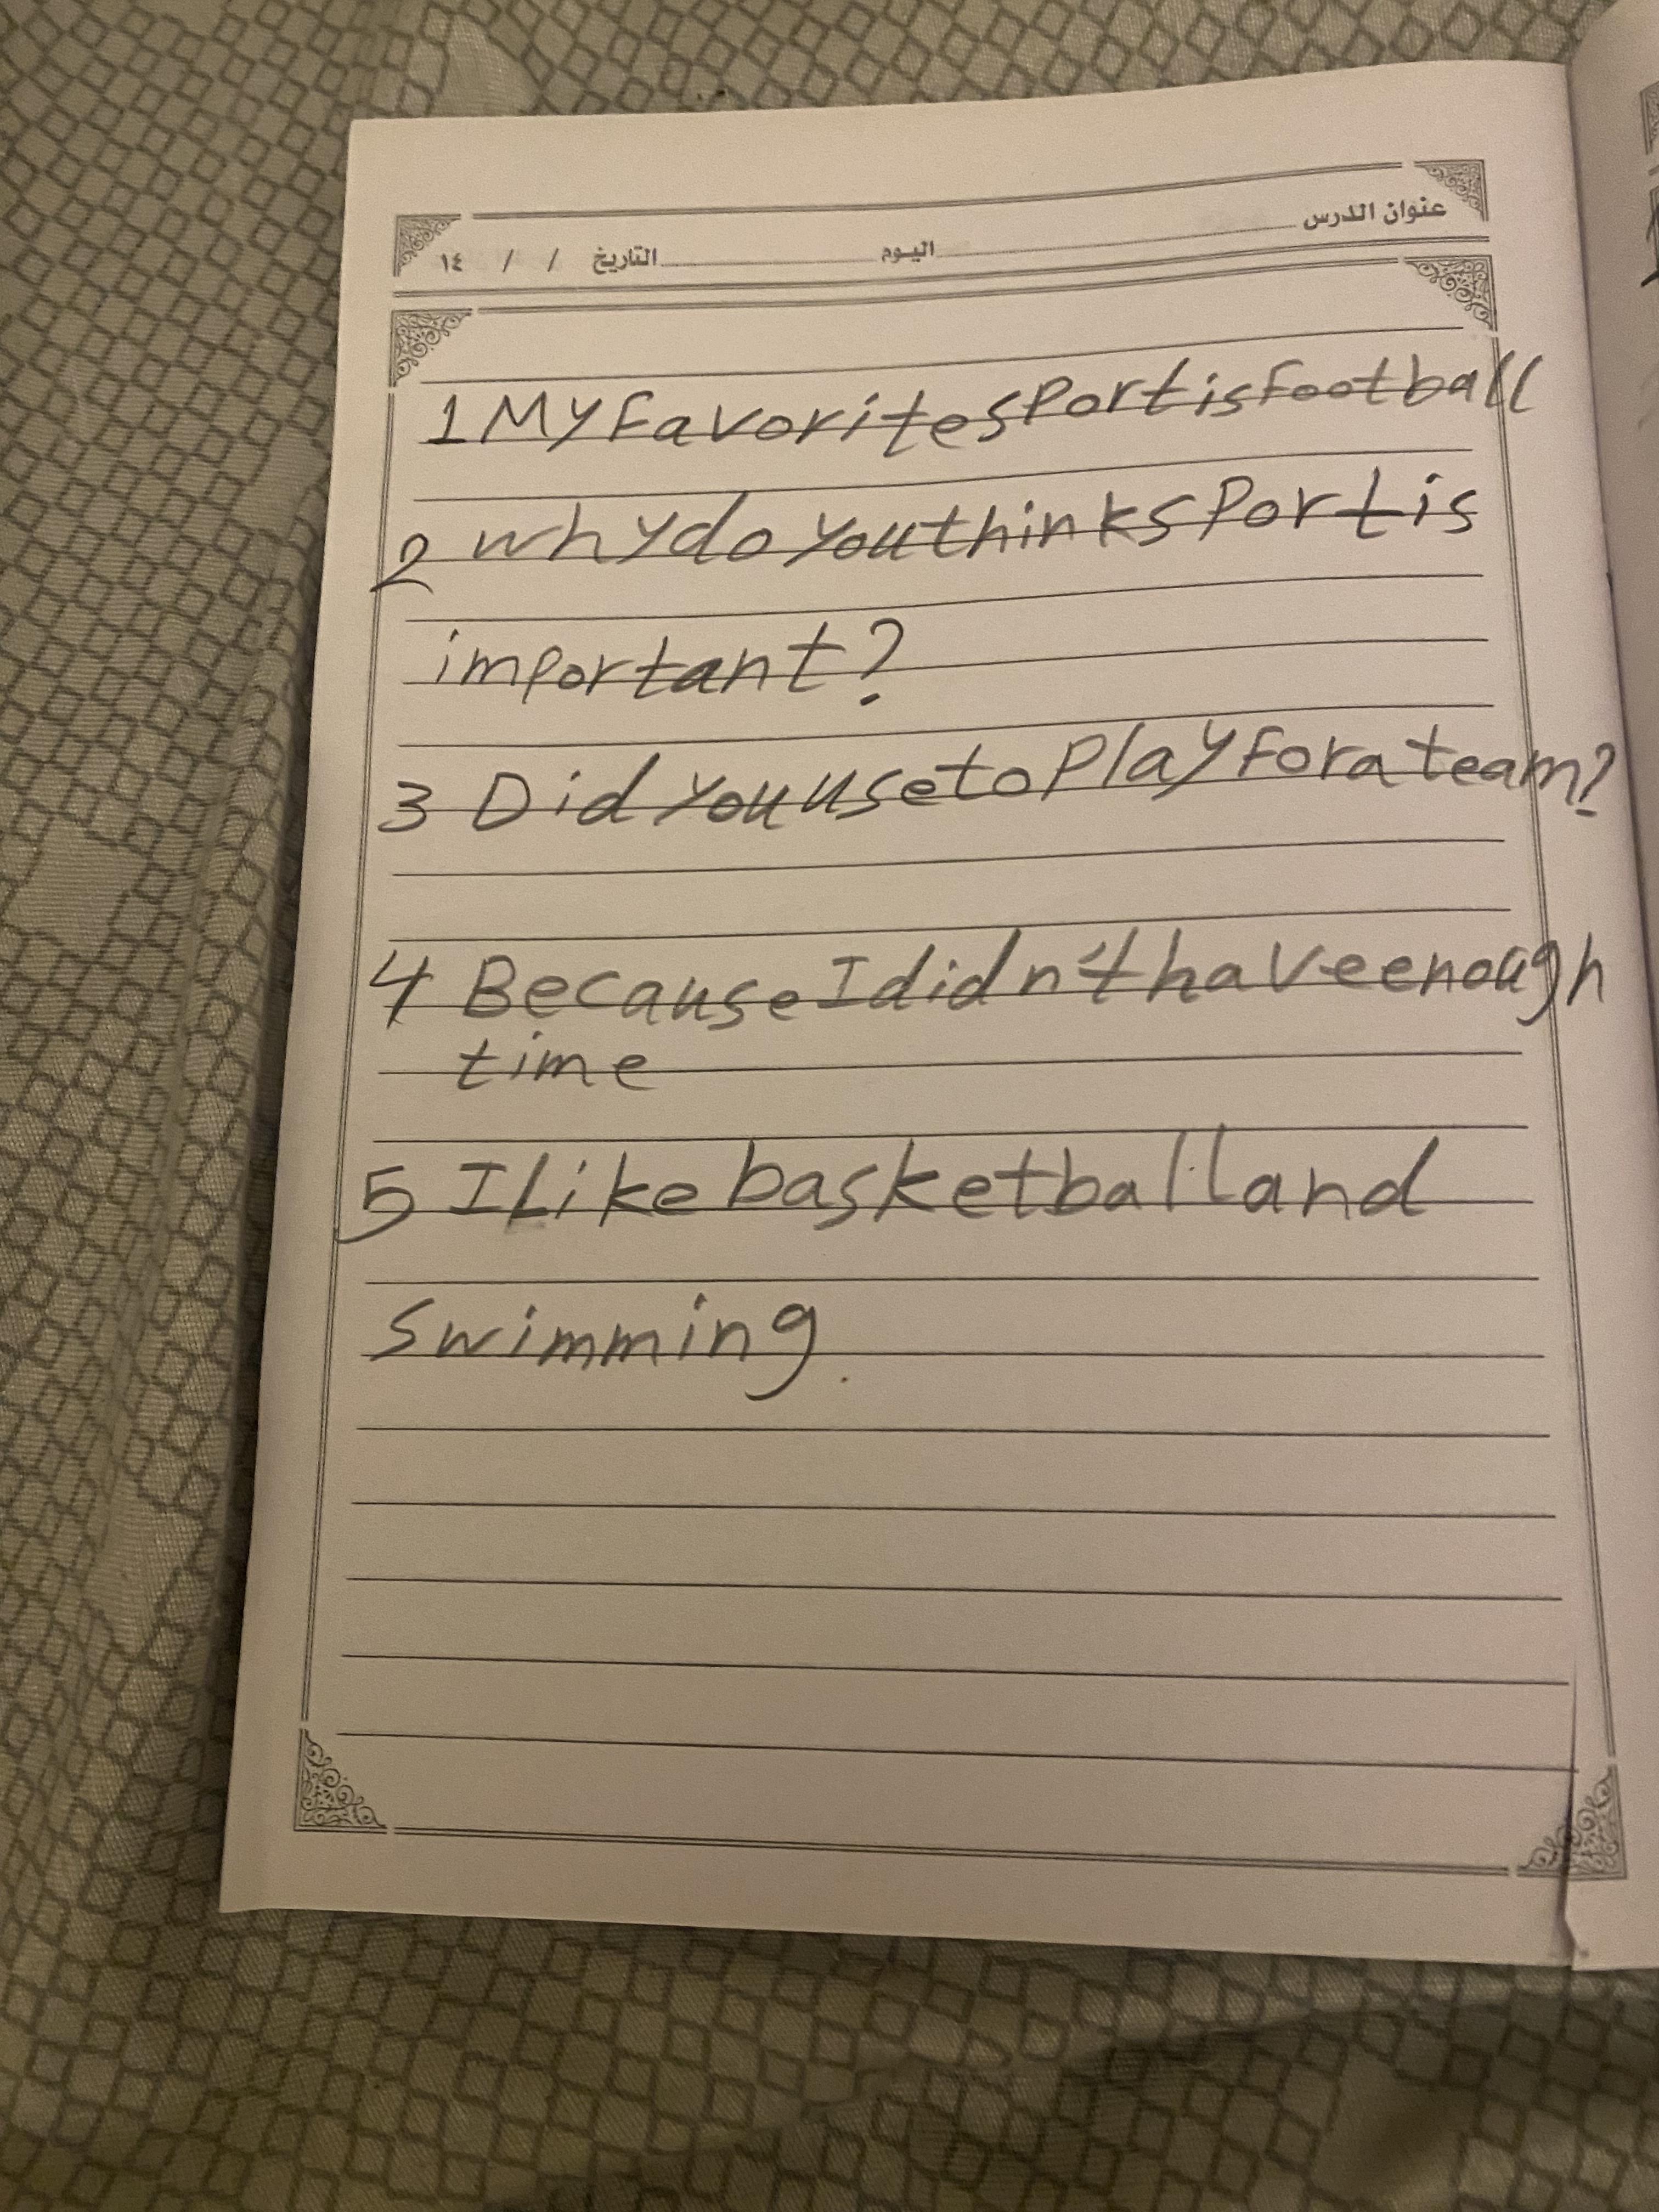 عنوان الدرس
اليوم التاريخ / / ١٤
1 My favorite sport is football
2 why do you think sport is
important?
3 Did you use to play for a team?
4 Because I didn't have enough
time
5 I Like basketball and
swimming.